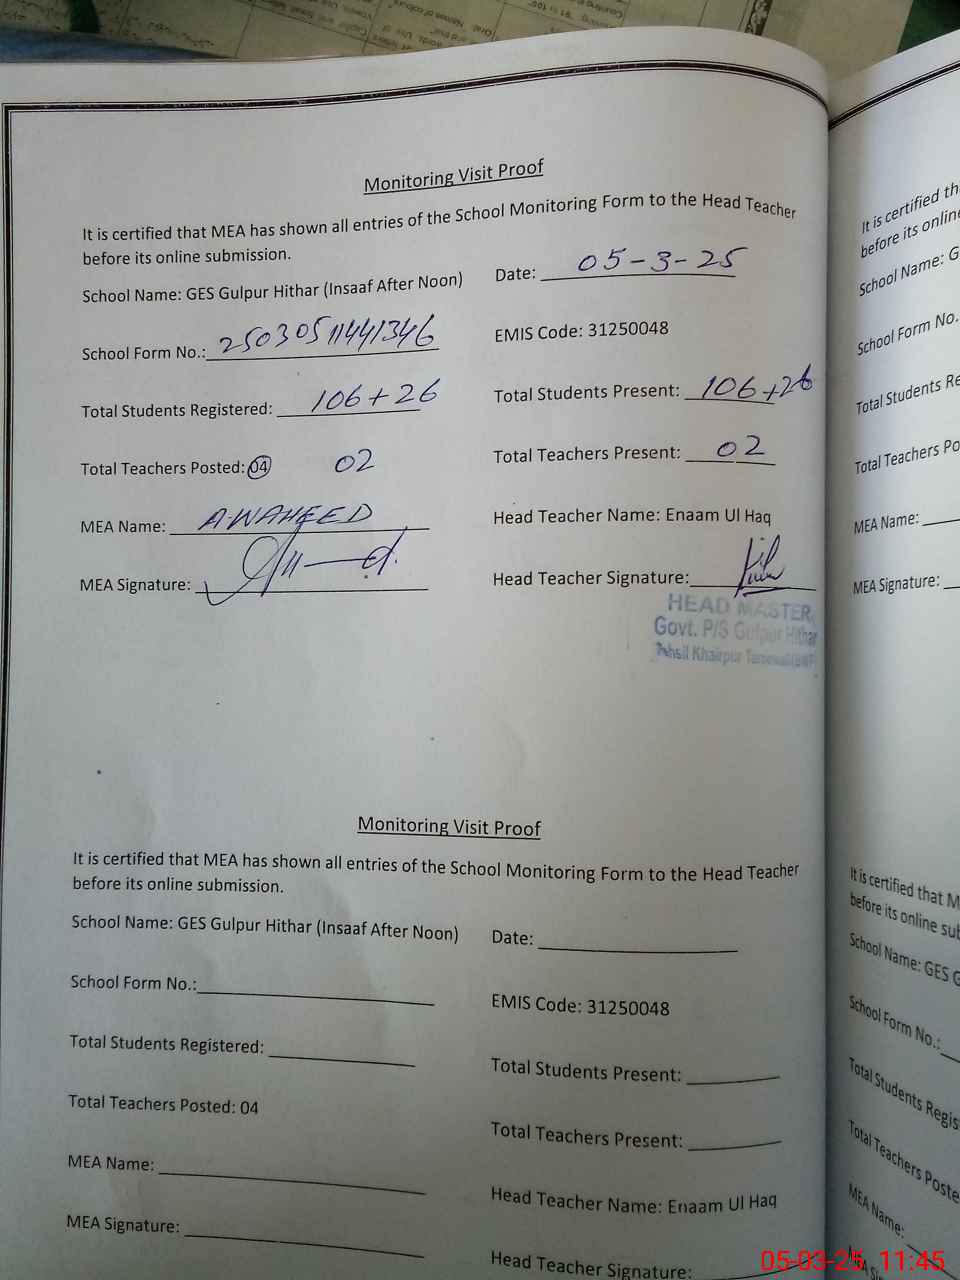 Monitoring Visit Proof
It is certified that MEA has shown all entries of the School Monitoring Form to the Head Teacher
before its online submission.
School Name: GES Gulpur Hithar (Insaaf After Noon)
Date: 05-3-25
School Form No.: 2503051144 1346
EMIS Code: 31250048
Total Students Registered: 106+26
Total Students Present: 106+26
Total Teachers Posted: 04 02
Total Teachers Present: 02
MEA Name: A.WAHEED
Head Teacher Name: Enaam Ul Haq
MEA Signature:
Head Teacher Signature:
HEAD MASTER
Govt. P/S Gulpur Hithar
Tehsil Khairpur
Monitoring Visit Proof
It is certified that MEA has shown all entries of the School Monitoring Form to the Head Teacher
before its online submission.
School Name: GES Gulpur Hithar (Insaaf After Noon)
Date:
School Form No.:
EMIS Code: 31250048
Total Students Registered:
Total Students Present:
Total Teachers Posted: 04
Total Teachers Present:
MEA Name:
Head Teacher Name: Enaam Ul Haq
MEA Signature:
Head Teacher Signature:
It is certified th
before its online
School Name: G
School Form No.
Total Students Re
Total Teachers Po
MEA Name:
MEA Signature:
It is certified that M
before its online sub
School Name: GES G
School Form No.:
Total Students Regis
Total Teachers Poste
MEA Name:
05-03-25 11:45